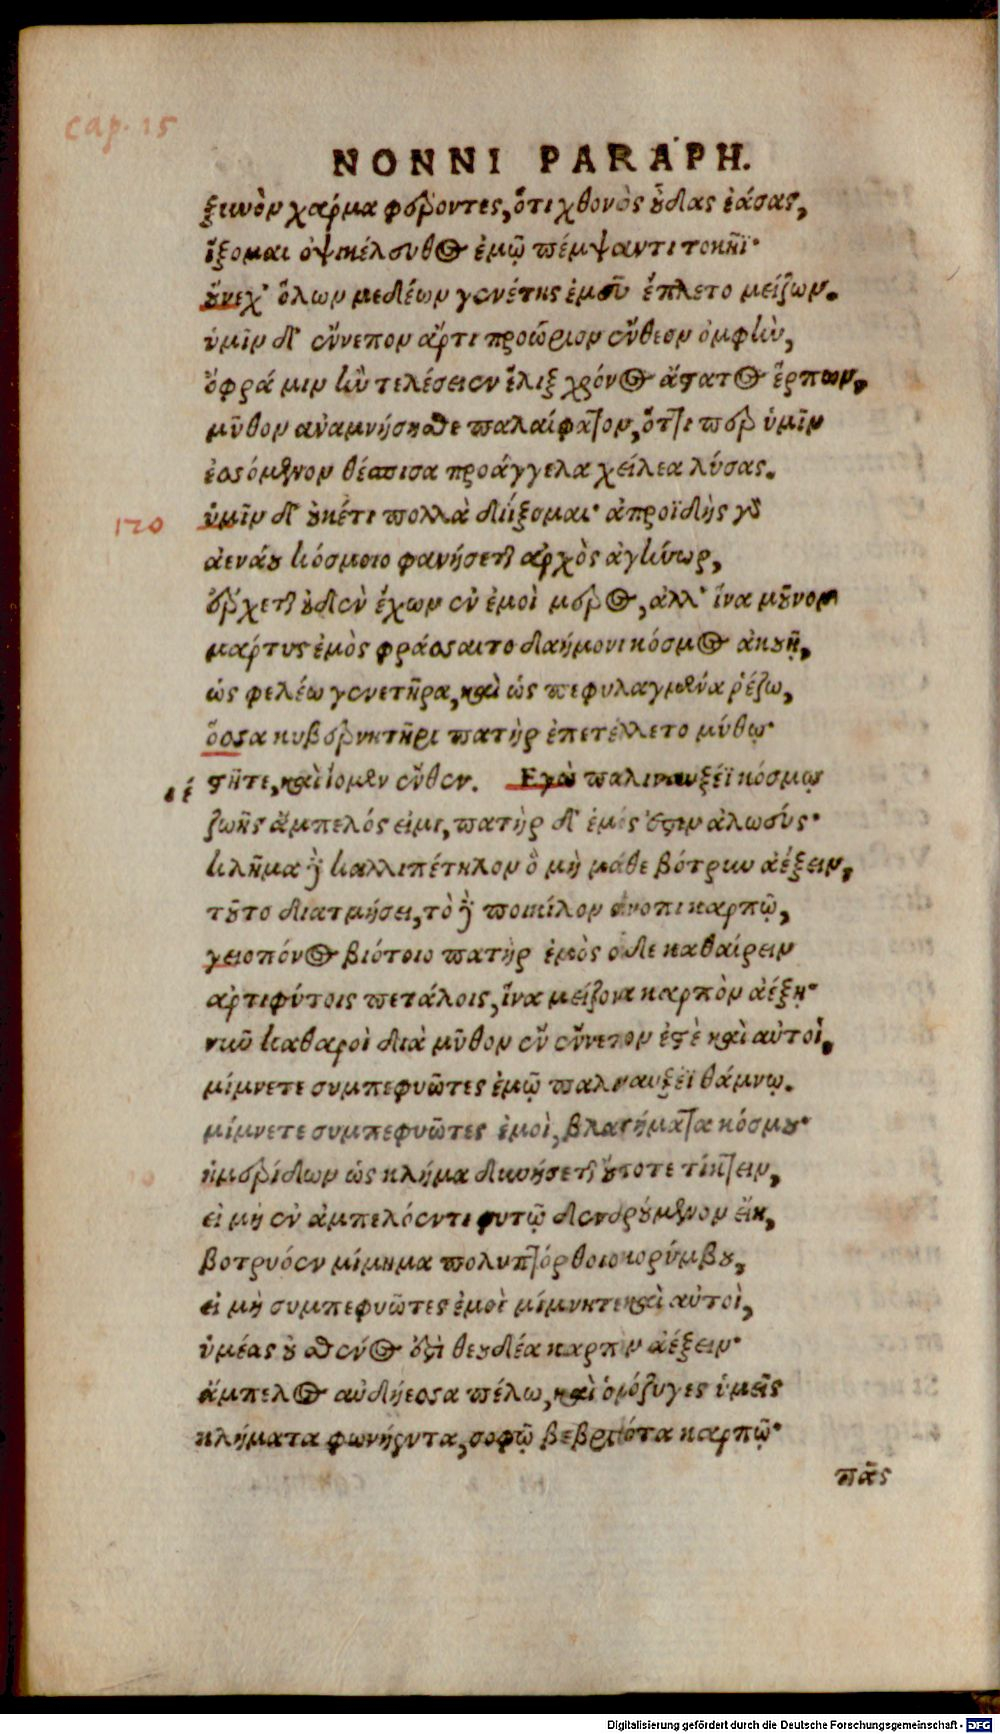 cap. 15
NONNI PARAPH.
ξυνὸν χάρμα φέροντες, ὅτι χθονὸς οὖδας ἐάσας,
ἵξομαι ὀψικέλευθος ἐμῷ πέμψαντι τοκῆϊ·
οὕνεχ' ὅλων μεδέων γενέτης ἐμοῦ ἔπλετο μείζων.
ὑμῖν δ' ἔννεπον ἄρτι προώριον ἔνθεον ὀμφὴν,
ὄφρά μιν ἢν τελέσειεν ἕλιξ χρόνος ἄστατος ἕρπων,
μῦθον ἀναμνήσησθε παλαίφατον, ὅττι περ ὑμῖν
ἐσσόμενον θέσπισα προάγγελα χείλεα λύσας.
120
ὑμῖν δ' οὐκέτι πολλὰ διΐξομαι· ἀπροϊδὴς γὰρ
ἀενάου κόσμοιο φανήσεται ἀρχὸς ἀγήνωρ,
ἔρχεται οὐδὲν ἔχων ἐν ἐμοὶ μέρος, ἀλλ' ἵνα μοῦνον
μάρτυς ἐμὸς φράσσαιτο δαήμονι κόσμος ἀκουῇ,
ὡς φιλέω γενετῆρα, καὶ ὡς πεφυλαγμένα ῥέζω,
ὅσσα κυβερνητῆρι πατὴρ ἐπετέλλετο μύθῳ·
ιέ
στῆτε, καὶ ἴομεν ἔνθεν. Εγὼ παλιναυξέϊ κόσμῳ
ζωῆς ἄμπελός εἰμι, πατὴρ δ' ἐμός ἐστιν ἀλωεύς·
κλῆμα δὲ καλλιπέτηλον ὃ μὴ μάθε βότρυν ἀέξειν,
τοῦτο διατμήσει, τὸ δὲ ποικίλον ἔνοπι καρπῷ,
γειοπόνος βιότοιο πατὴρ ἐμὸς οἶδε καθαίρειν
ἀρτιφύτοις πετάλοις, ἵνα μείζονα καρπὸν ἀέξῃ·
νῦν καθαροὶ διὰ μῦθον ὃν ἔννεπον ἐστὲ καὶ αὐτοὶ,
μίμνετε συμπεφυῶτες ἐμῷ παλιναυξέϊ θάμνῳ.
μίμνετε συμπεφυῶτες ἐμοὶ, βλαστήματα κόσμου·
ἡμερίδων ὡς κλήμα δυνήσεται οὔποτε τίκτειν,
εἰ μὴ ἐν ἀμπελόεντι φυτῷ δενδρούμενον εἴη,
βοτρυόεν μίμημα πολυπτόρθοιο κορύμβου,
εἰ μὴ συμπεφυῶτες ἐμοὶ μίμνητε καὶ αὐτοὶ,
ὑμέας οὐ σθένος ἐστὶ θεουδέα καρπὸν ἀέξειν·
ἄμπελος αὐδήεσσα πέλω, καὶ ὁμόζυγες ὑμεῖς
κλήματα φωνήεντα, σοφῷ βεβριθότα καρπῷ·
πᾶς
Digitalisierung gefördert durch die Deutsche Forschungsgemeinschaft - DFG